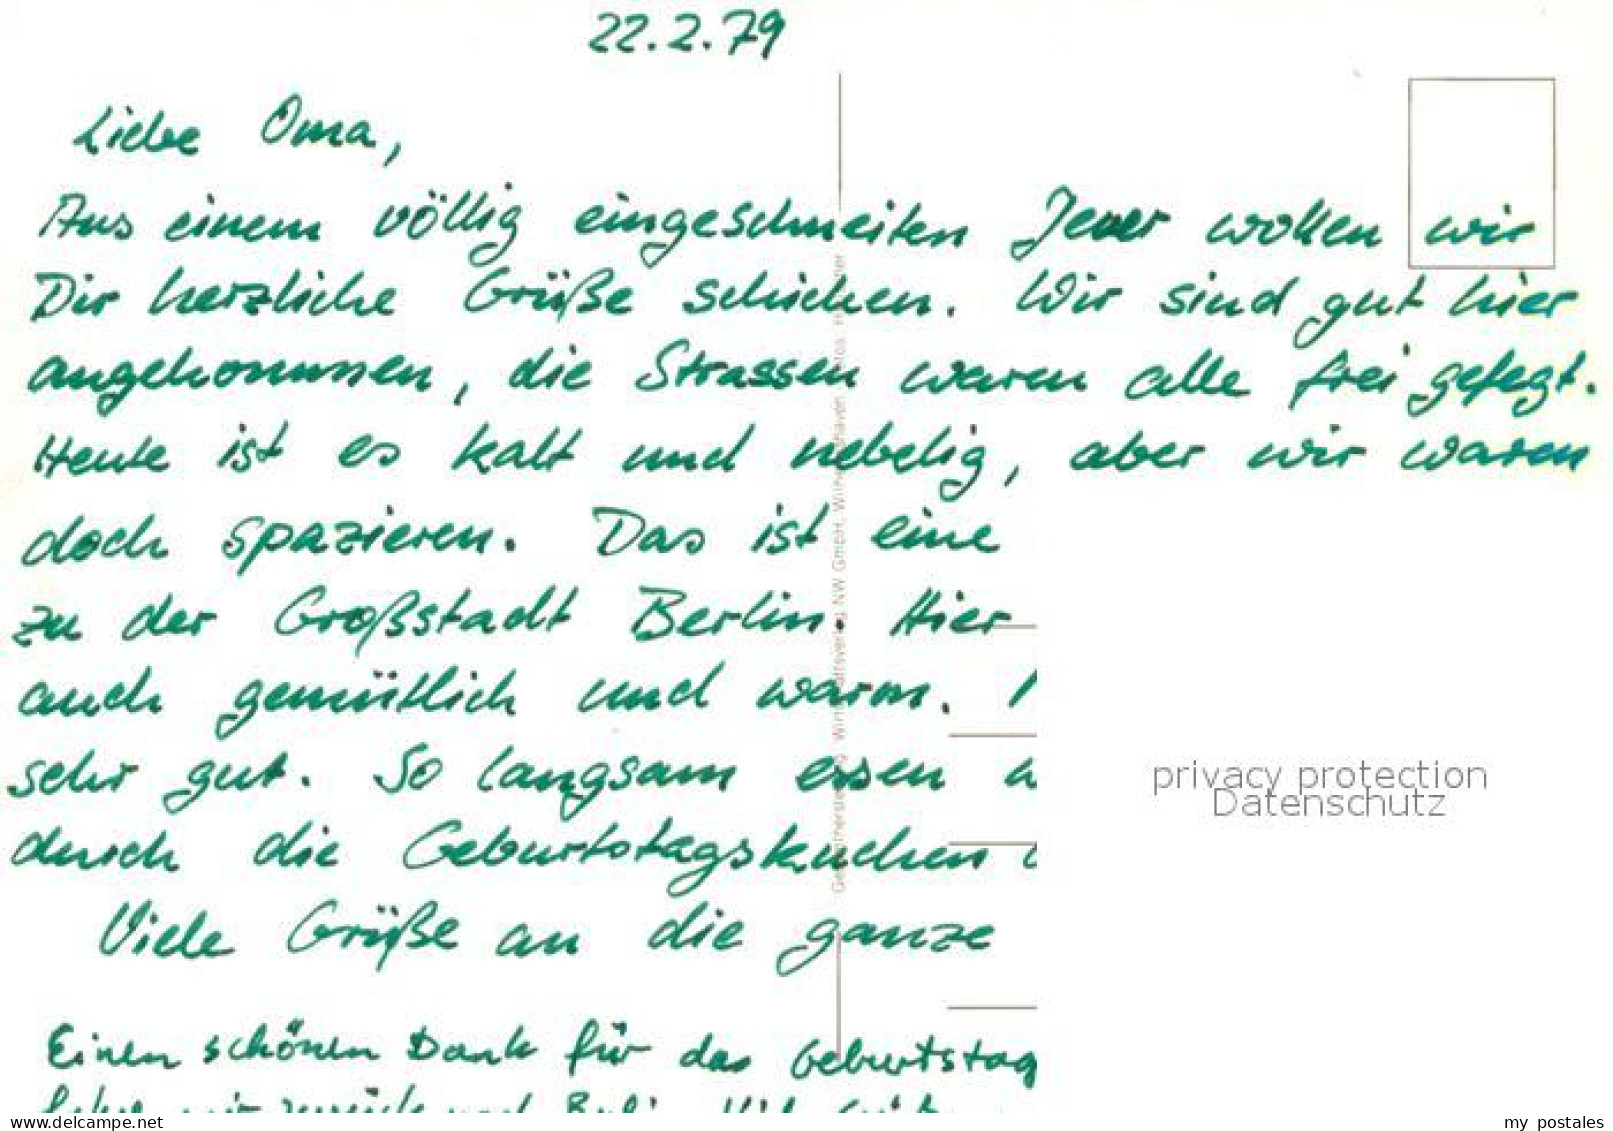 22.2.79
Liebe Oma,
Aus einem völlig eingeschneiten Jever wollen wir
Dir herzliche Grüße schicken. Wir sind gut hier
angekommen, die Strassen waren alle frei gefegt.
Heute ist es kalt und nebelig, aber wir waren
doch spazieren. Das ist eine
zu der Großstadt Berlin. Hier
auch gemütlich und warm.
sehr gut. So langsam essen
durch die Geburtstagskuchen
Viele Grüße an die ganze
Einen schönen Dank für das Geburtstag
wir zurück nach
privacy protection
Datenschutz
www.delcampe.net
my_postales